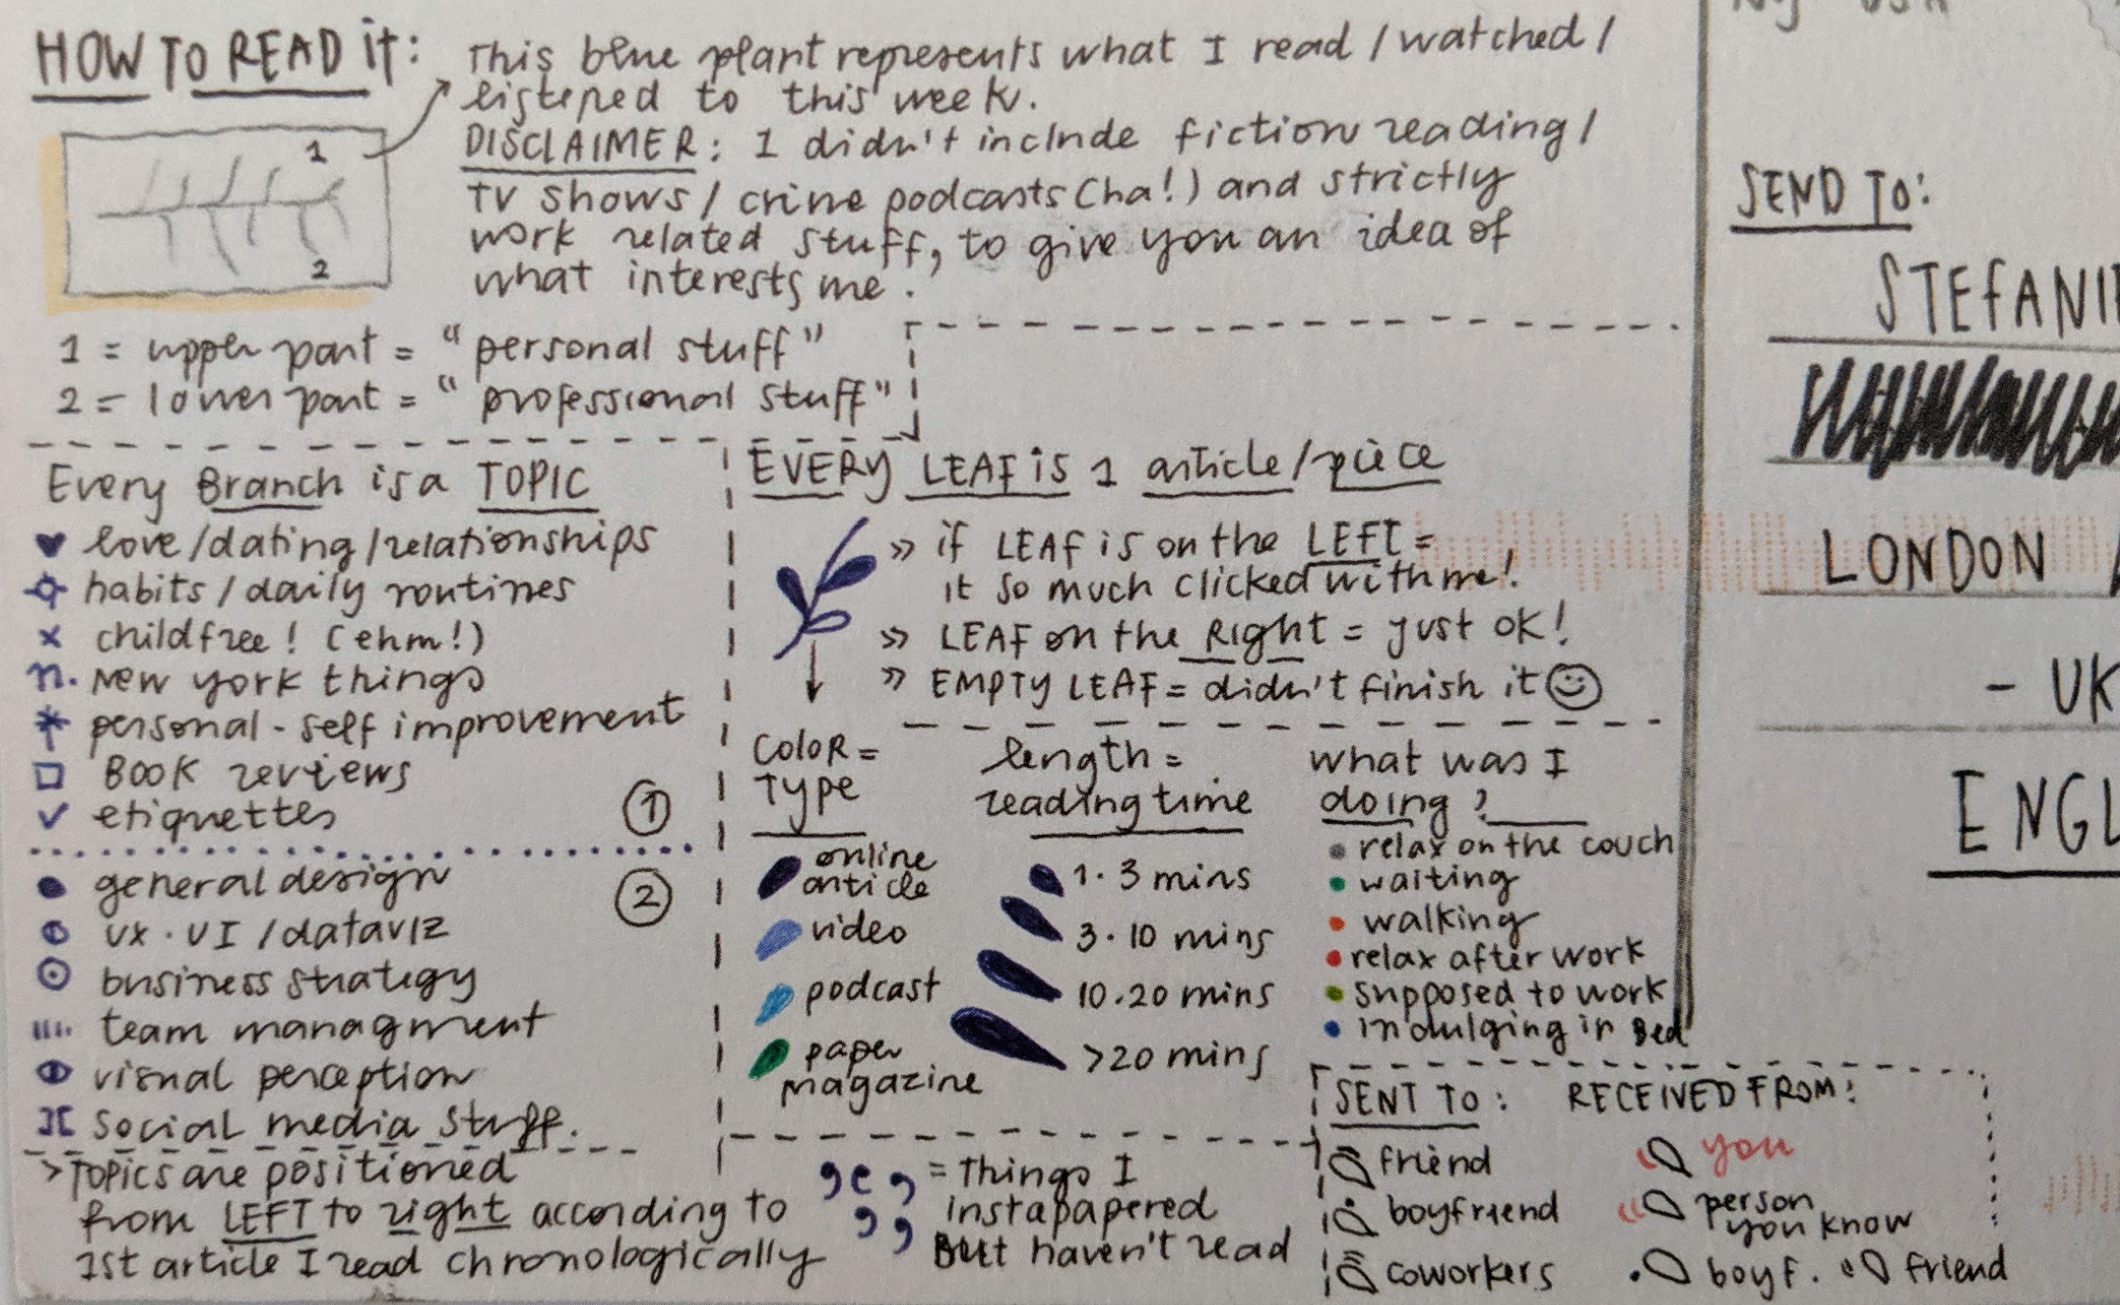 HOW TO READ IT:
This blue plant represents what I read / watched /
listened to this week.
DISCLAIMER: I didn't include fiction reading /
TV shows / crime podcasts (ha!) and strictly
work related stuff, to give you an idea of
what interests me.
1
2
1 = upper part = "personal stuff"
2 = lower part = "professional stuff"
Every Branch is a TOPIC
love/dating/relationships
habits/daily routines
childfree! (ehm!)
n. New york things
personal-self improvement
BOOK reviews
etiquettes
1
general design
2
UX·UI/dataviz
business strategy
team managment
visual perception
social media stuff.
>TOPICS are positioned
from LEFT to right according to
1st article I read chronologically
EVERY LEAF is 1 article/piece
» if LEAF is on the LEFT =
it so much clicked with me!
» LEAF on the Right = just OK!
» EMPTY LEAF = didn't finish it
COLOR =
Type
online
article
video
podcast
paper
magazine
length =
reading time
1·3 mins
3·10 mins
10·20 mins
>20 mins
what was I
doing?
relax on the couch
waiting
walking
relax after work
supposed to work
indulging in Bed
= Things I
instapapered
But haven't read
SENT TO:
friend
boyfriend
coworkers
RECEIVED FROM:
you
person
you know
boyf.
friend
SEND TO:
STEFANI
LONDON
- UK
ENGL